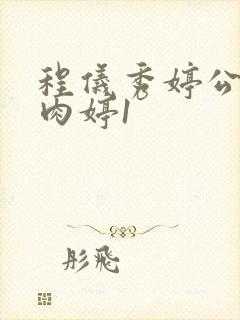 程仪秀婷公
肉婷1
彤飞